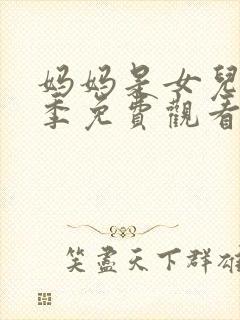 妈妈是女兒
季免費觀看
笑盡天下群雄